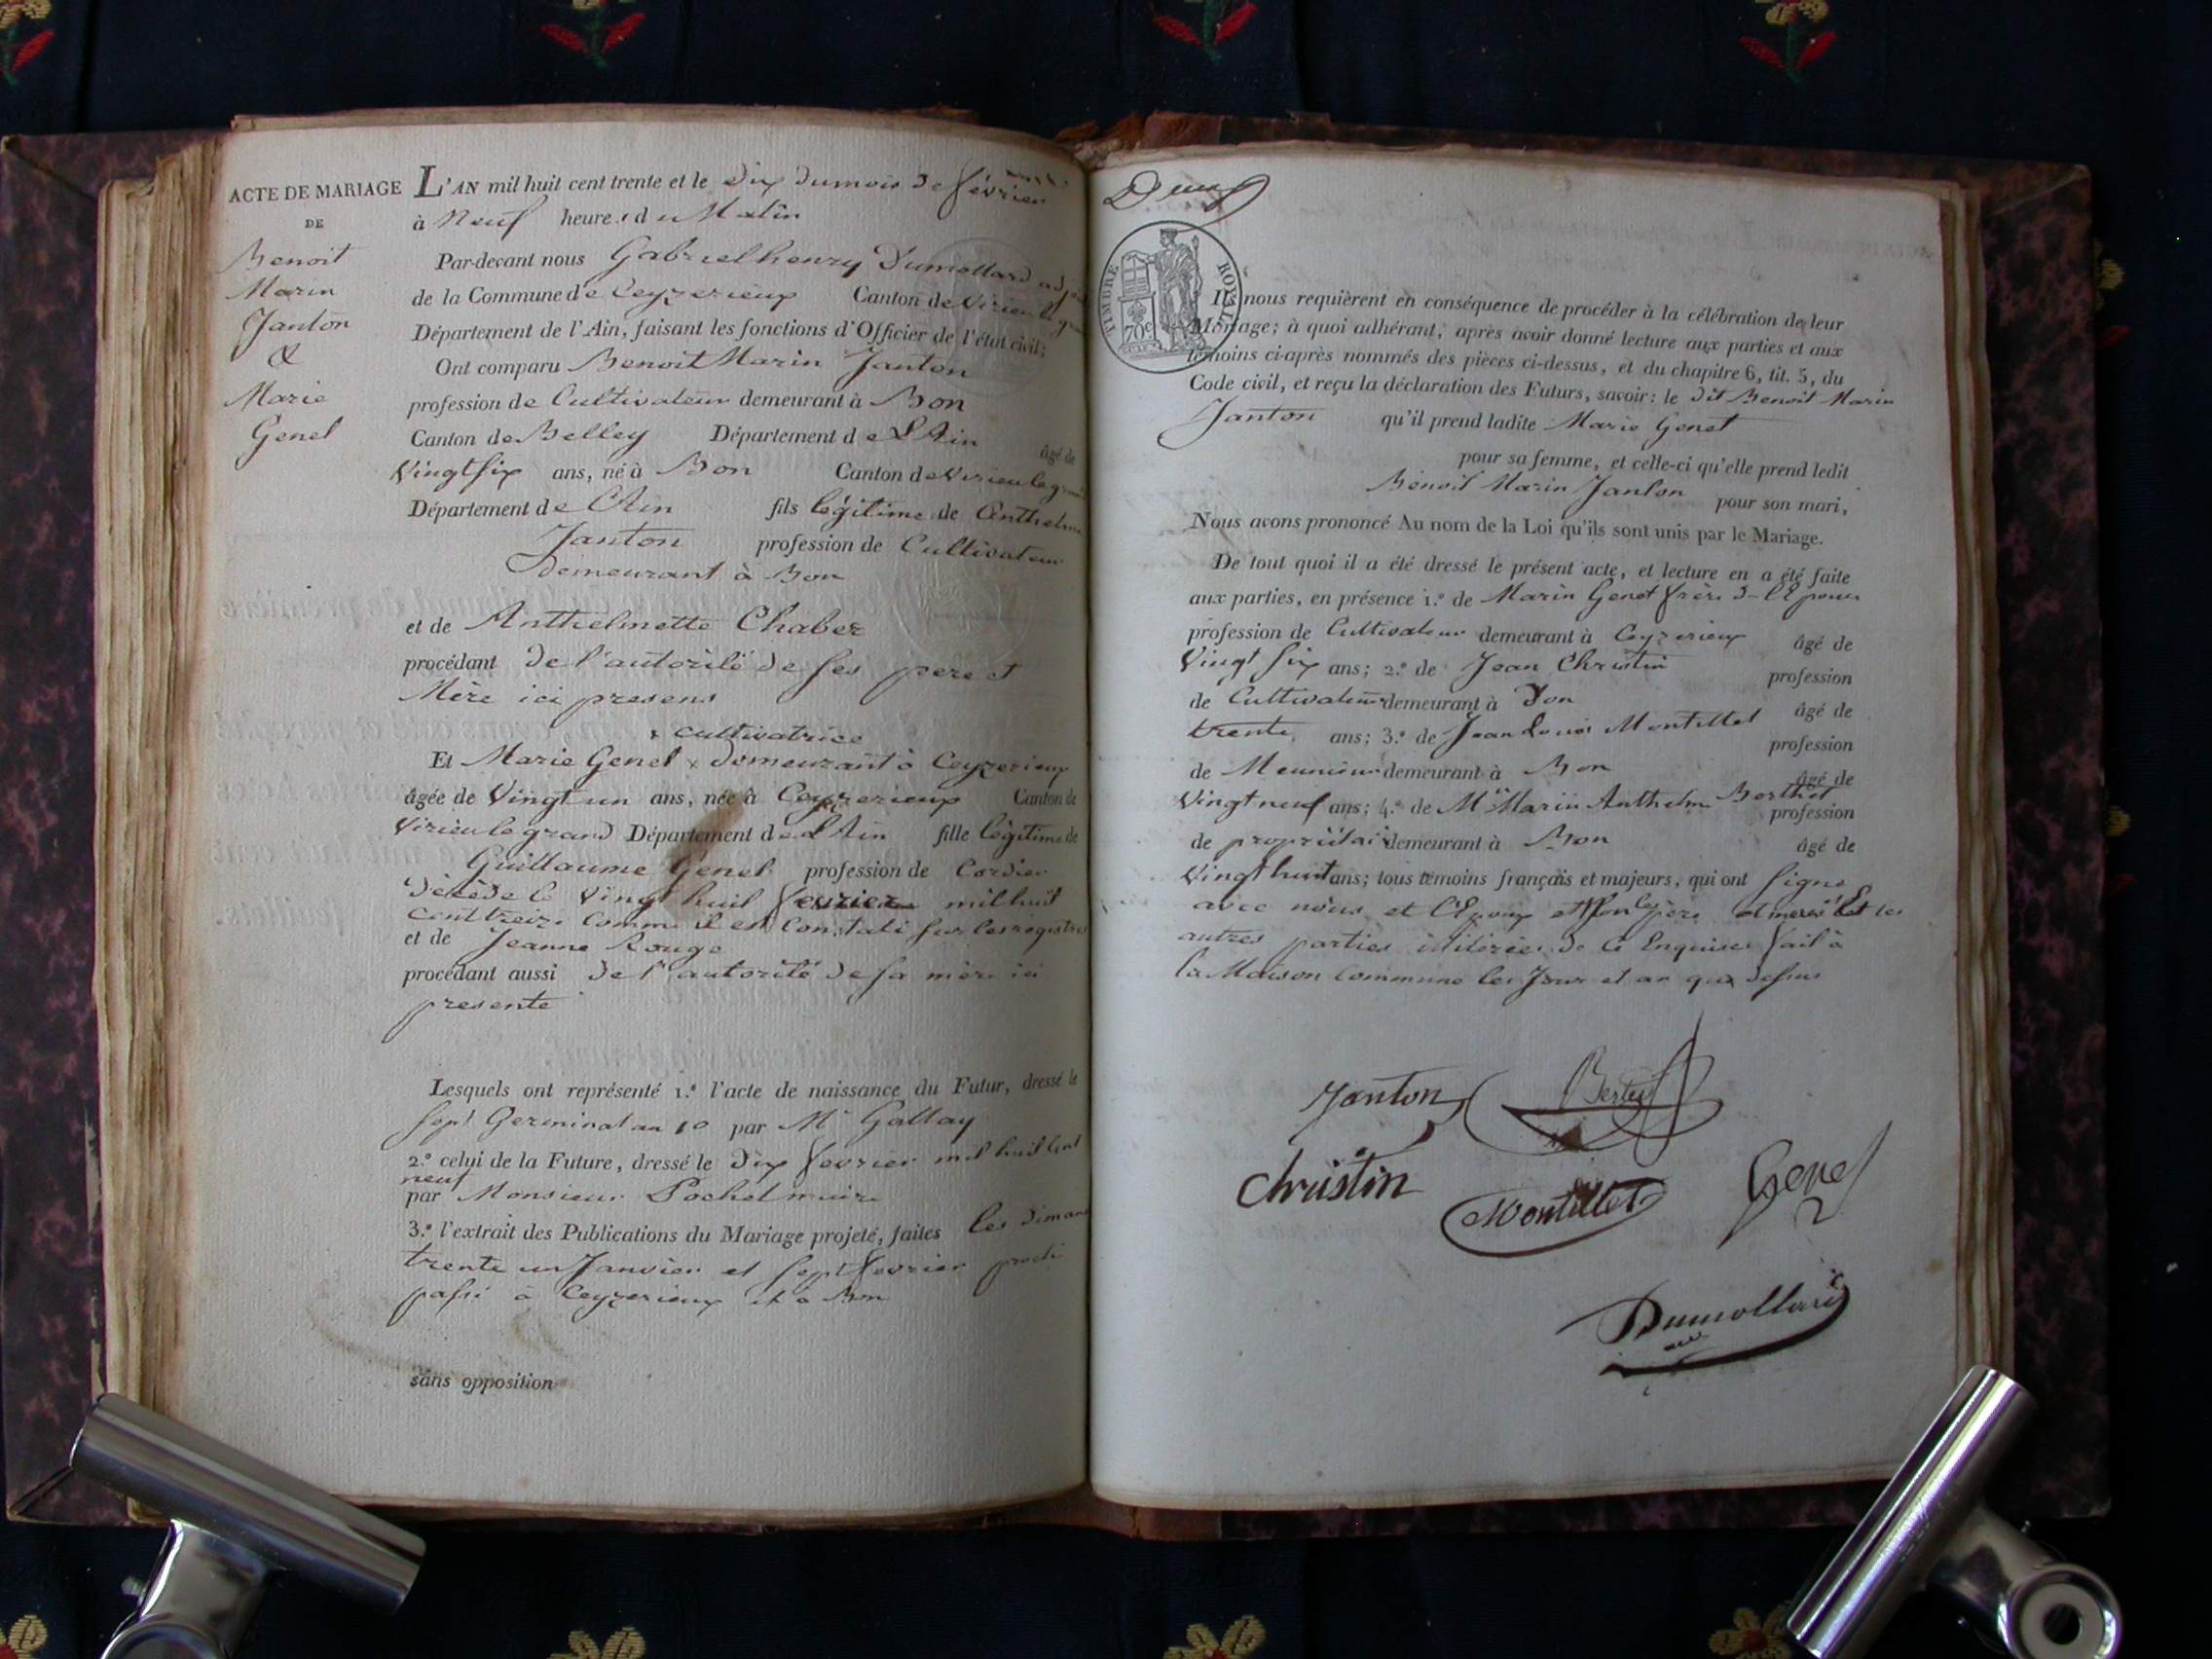 ACTE DE MARIAGE
DE
Benoit
Marin
Janton
&
Marie
Genet
L'AN mil huit cent trente et le dix du mois de février
à Neuf heures du Matin
Par-devant nous Gabriel henry Dumollard adj
de la Commune de Ceyzerieux Canton de Virieu le gran
Département de l'Ain, faisant les fonctions d'Officier de l'état civil;
Ont comparu Benoit Marin Janton
profession de Cultivateur demeurant à Bon
Canton de Belley Département de L'Ain âgé de
Vingt six ans, né à Bon Canton de Virieu le gran
Département de L'Ain fils légitime de Anthelme
Janton profession de Cultivateur
demeurant à Bon
et de Anthelmette Chaber
procédant de l'autorité de ses pere et
Mère ici presens
x cultivatrice
Et Marie Genet x demeurant à Ceyzerieux
âgée de Vingt un ans, née à Ceyzerieux Canton de
Virieu le grand Département de L'Ain fille légitime de
Guillaume Genet profession de Cordier
décédé le Vingt huit fevrier mil huit
cent treize comme il est Constaté sur les registres
et de Jeanne Rouge
procédant aussi de l'autorité de sa mère ici
presente
Lesquels ont représenté 1.° l'acte de naissance du Futur, dressé le
sept Germinal an 10 par Mr Gallay
2.° celui de la Future, dressé le dix fevrier mil huit Cent
neuf
par Monsieur Pochet maire
3.° l'extrait des Publications du Mariage projeté, faites les diman
trente un Janvier et sept fevrier
passé à Ceyzerieux et à Bon
sans opposition
Deux
TIMBRE ROYAL
70c
Ils nous requièrent en conséquence de procéder à la célébration de leur
Mariage; à quoi adhérant, après avoir donné lecture aux parties et aux
témoins ci-après nommés des pièces ci-dessus, et du chapitre 6, tit. 5, du
Code civil, et reçu la déclaration des Futurs, savoir: le dit Benoit Marin
Janton qu'il prend ladite Marie Genet
pour sa femme, et celle-ci qu'elle prend ledit
Benoit Marin Janton pour son mari,
Nous avons prononcé Au nom de la Loi qu'ils sont unis par le Mariage.
De tout quoi il a été dressé le présent acte, et lecture en a été faite
aux parties, en présence 1.° de Marin Genet frère de l'Epouse
profession de Cultivateur demeurant à Ceyzerieux âgé de
Vingt six ans; 2.° de Jean Christin profession
de Cultivateur demeurant à Don âgé de
trente ans; 3.° de Jean Louis Montillet profession
de Meunier demeurant à Bon âgé de
Vingt neuf ans; 4.° de Mr Marin Anthelme Berthet profession
de propriétaire demeurant à Bon âgé de
Vingt huit ans; tous témoins français et majeurs, qui ont signé
avec nous et l'Epoux et son père et les
autres parties illitérées de ce Enquises fait à
la Maison Commune les Jour et an que dessus
Janton
Bertet
Christin
Montillet
Genet
Dumollard